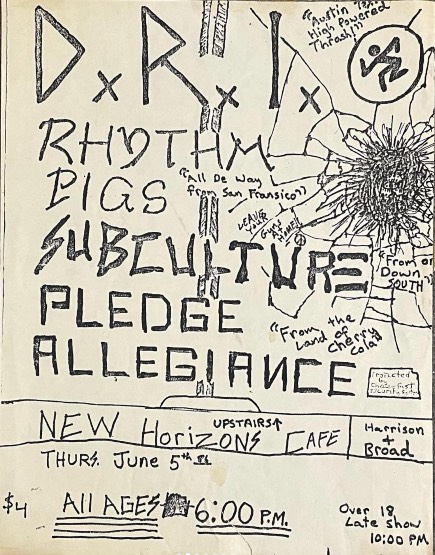 D.x R.x I.x
"Austin
High Powered
Thrash!"
RHYTHM
PIGS
"All De Way
from San Fransico"
LEAVE
Your
Guns
AT
HOME!!
SUBCULTURE
"From or
Down
SOUTH"
PLEDGE
ALLEGIANCE
"From the
Land of
Cherry
Cola"
Protected
NEW HorIZONS CAFE
UPSTAIRS↑
Harrison
+
Broad
THURS. June 5th
$4
All AGES 6:00 P.M.
Over 18
Late show
10:00 PM